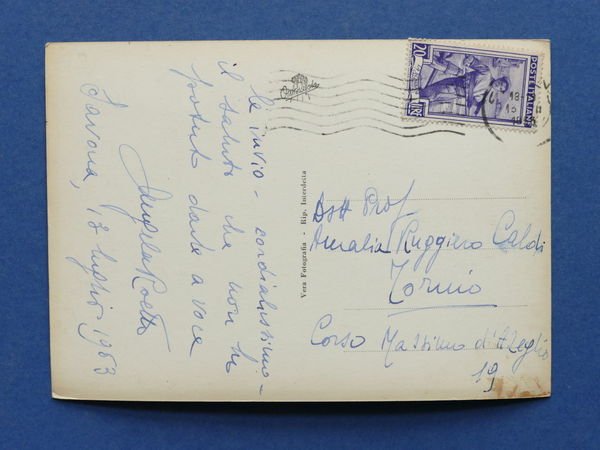 le invio - cordialissimo -
il saluto che non ho
potuto darle a voce
Angela Rosetti
Savona, 13 luglio 1953
Vera Fotografia - Rip. Interdetta
20
POSTE ITALIANE
LIRE
Dott Prof
Amalia Ruggiero Caldi
Torino
Corso Massimo d'Azeglio
19